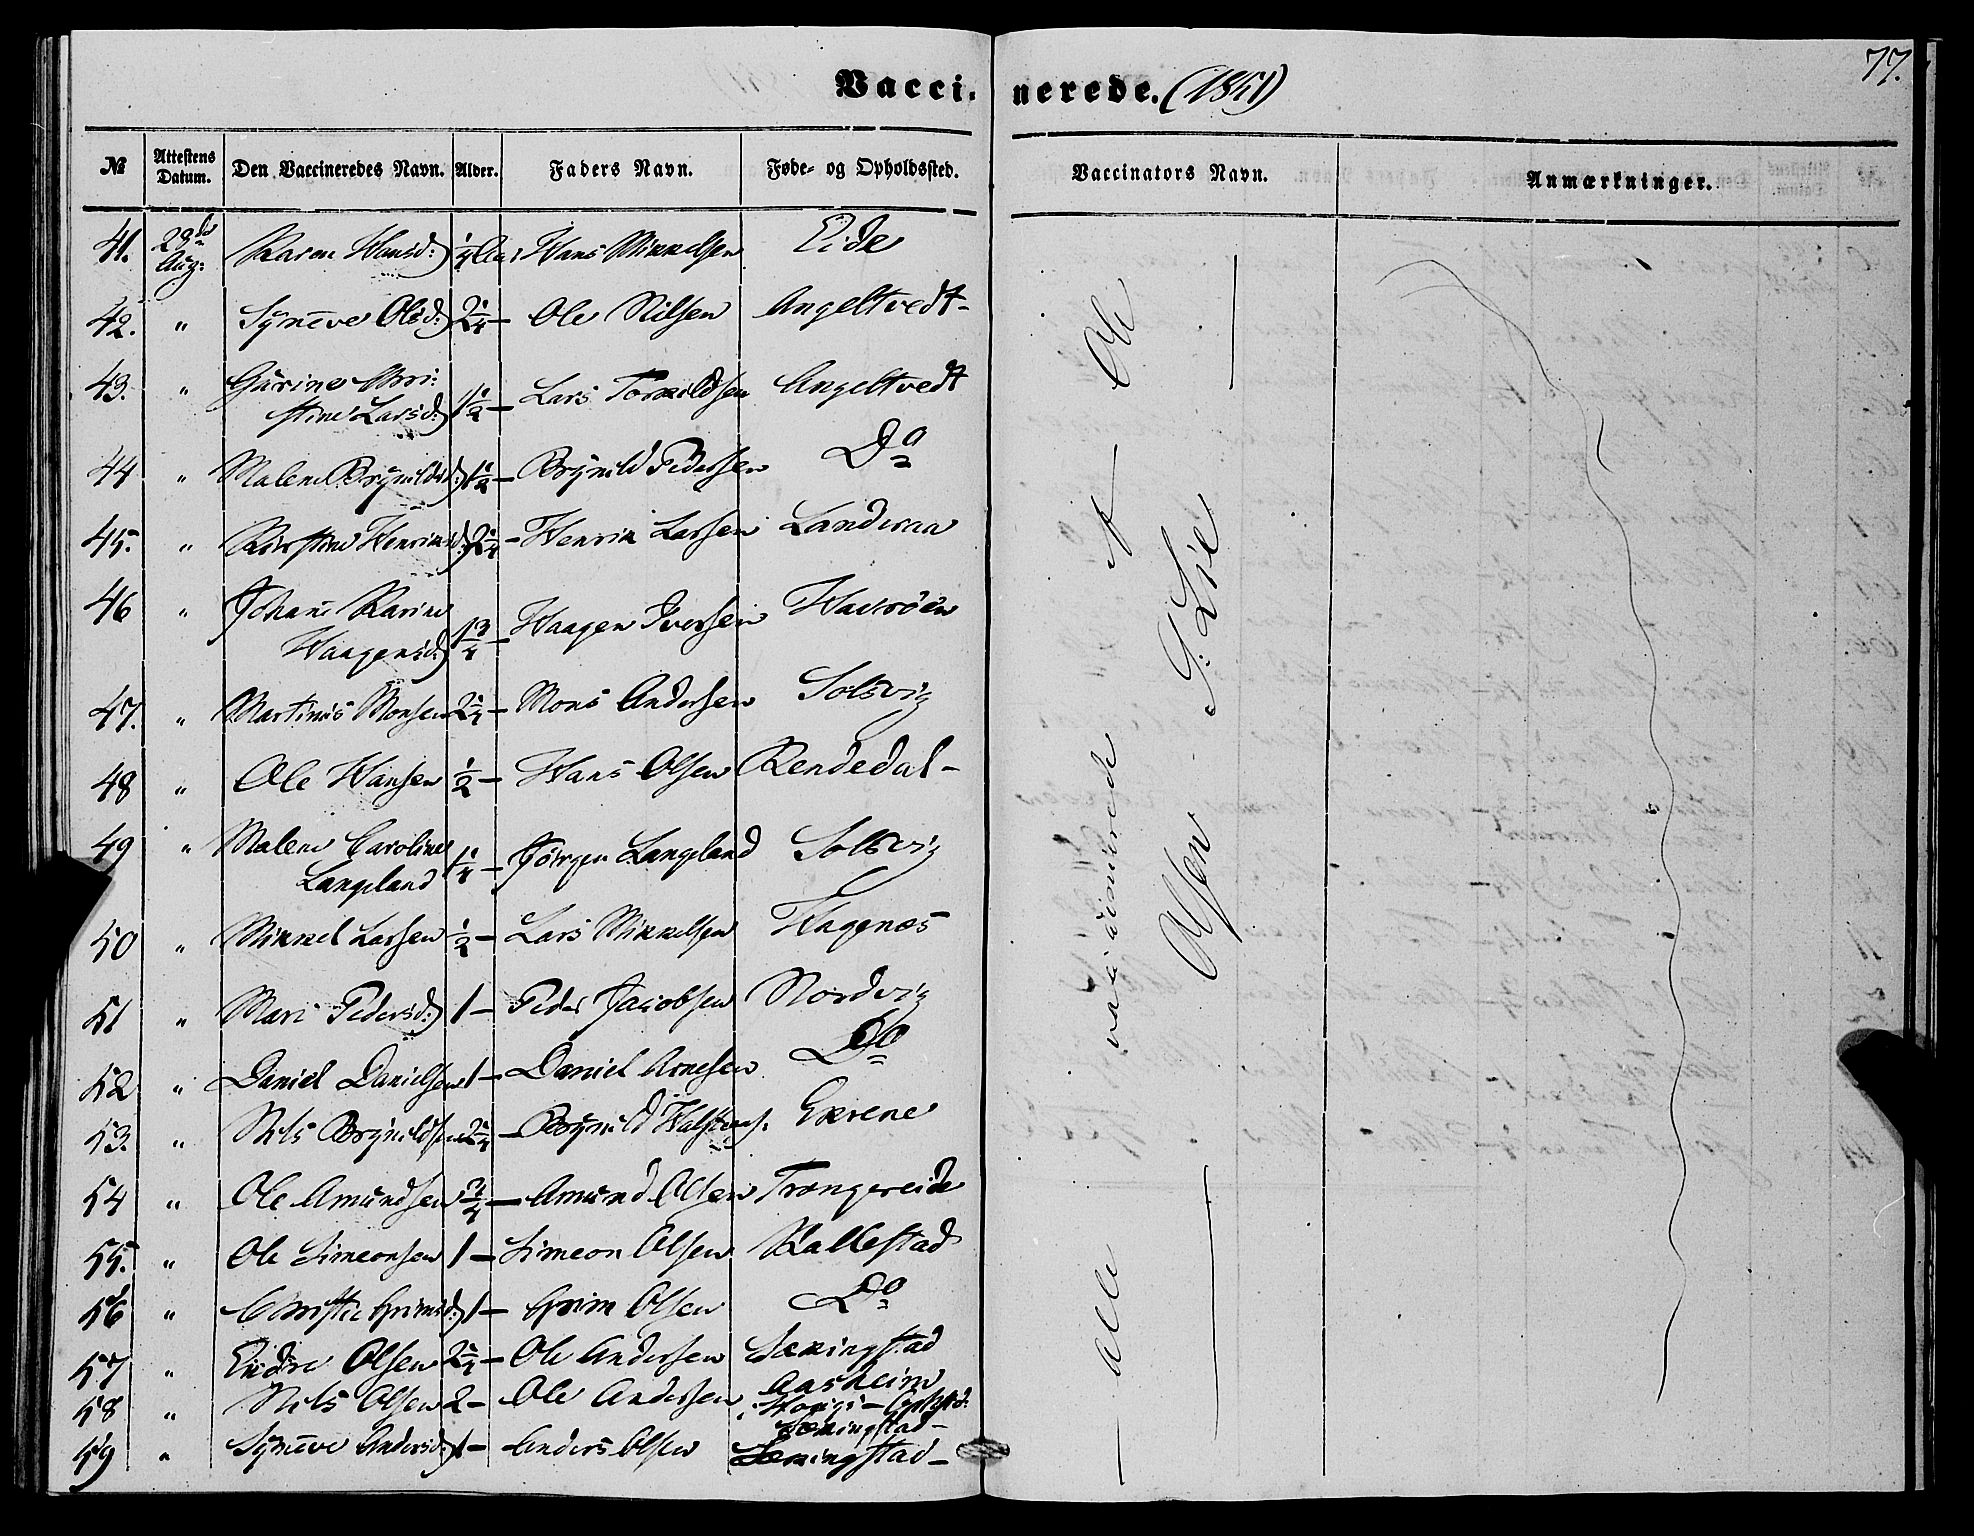 77.
Vaccinerede. (1851)
№ | Attestens Datum. | Den Vaccineredes Navn. | Alder. | Faders Navn. | Føde- og Opholdssted. | Vaccinators Navn. | Anmærkninger.
41. 29de Aug: Hansd: Hans Mikkelsen Eide
42. " Synneve Olsd: 2 1/4 – Ole Nilsen Angeltvedt –
43. " Gurine Chri-
stine Larsd: 1 1/2 – Lars Angeltvedt
44 " Malene Brynildsd: 1 1/2 – Brynild Pedersen Do
45. " Henriksd: 2 1/4 – Henrik Larsen Landeraa
46 " Johanne Karine
Haagensd: 1 3/4 – Haagen Iversen
47. " Martinus Monsen 2 1/4 – Mons Andersen Solsvig
48 " Ole Hansen 1/2 – Hans Olsen Rendedal –
49 " Malene Caroline
Langeland 1 1/4 – Jørgen Langeland Solsvig
50 " Mikkel Larsen 1/2 – Lars Mikkelsen Hagenæs
51 " Mari Pedersd: 1 – Peder Jacobsen Nordvig
52 " Daniel Danielsen 1 – Daniel Arnesen Do
53. " Nils Brynildsen 2 1/4 – Brynild Ekrene
54 " Ole Amundsen 3/4 – Amund Olsen Trongereide
55. " Ole Simeonsen 1 – Simeon Olsen Kallestad
56 " Grimsd: 1 – Grim Olsen Do
57 " Endre Olsen 2 1/4 – Ole Andersen Sækingstad
58 " Nils Olsen 2 – Ole Andersen Aasheim
Sækingstad –
59 " Synneve Andersd: 1 – Anders Olsen Sækingstad –
– alle vaccinerede af Ole –
– Olsen S: Lie –